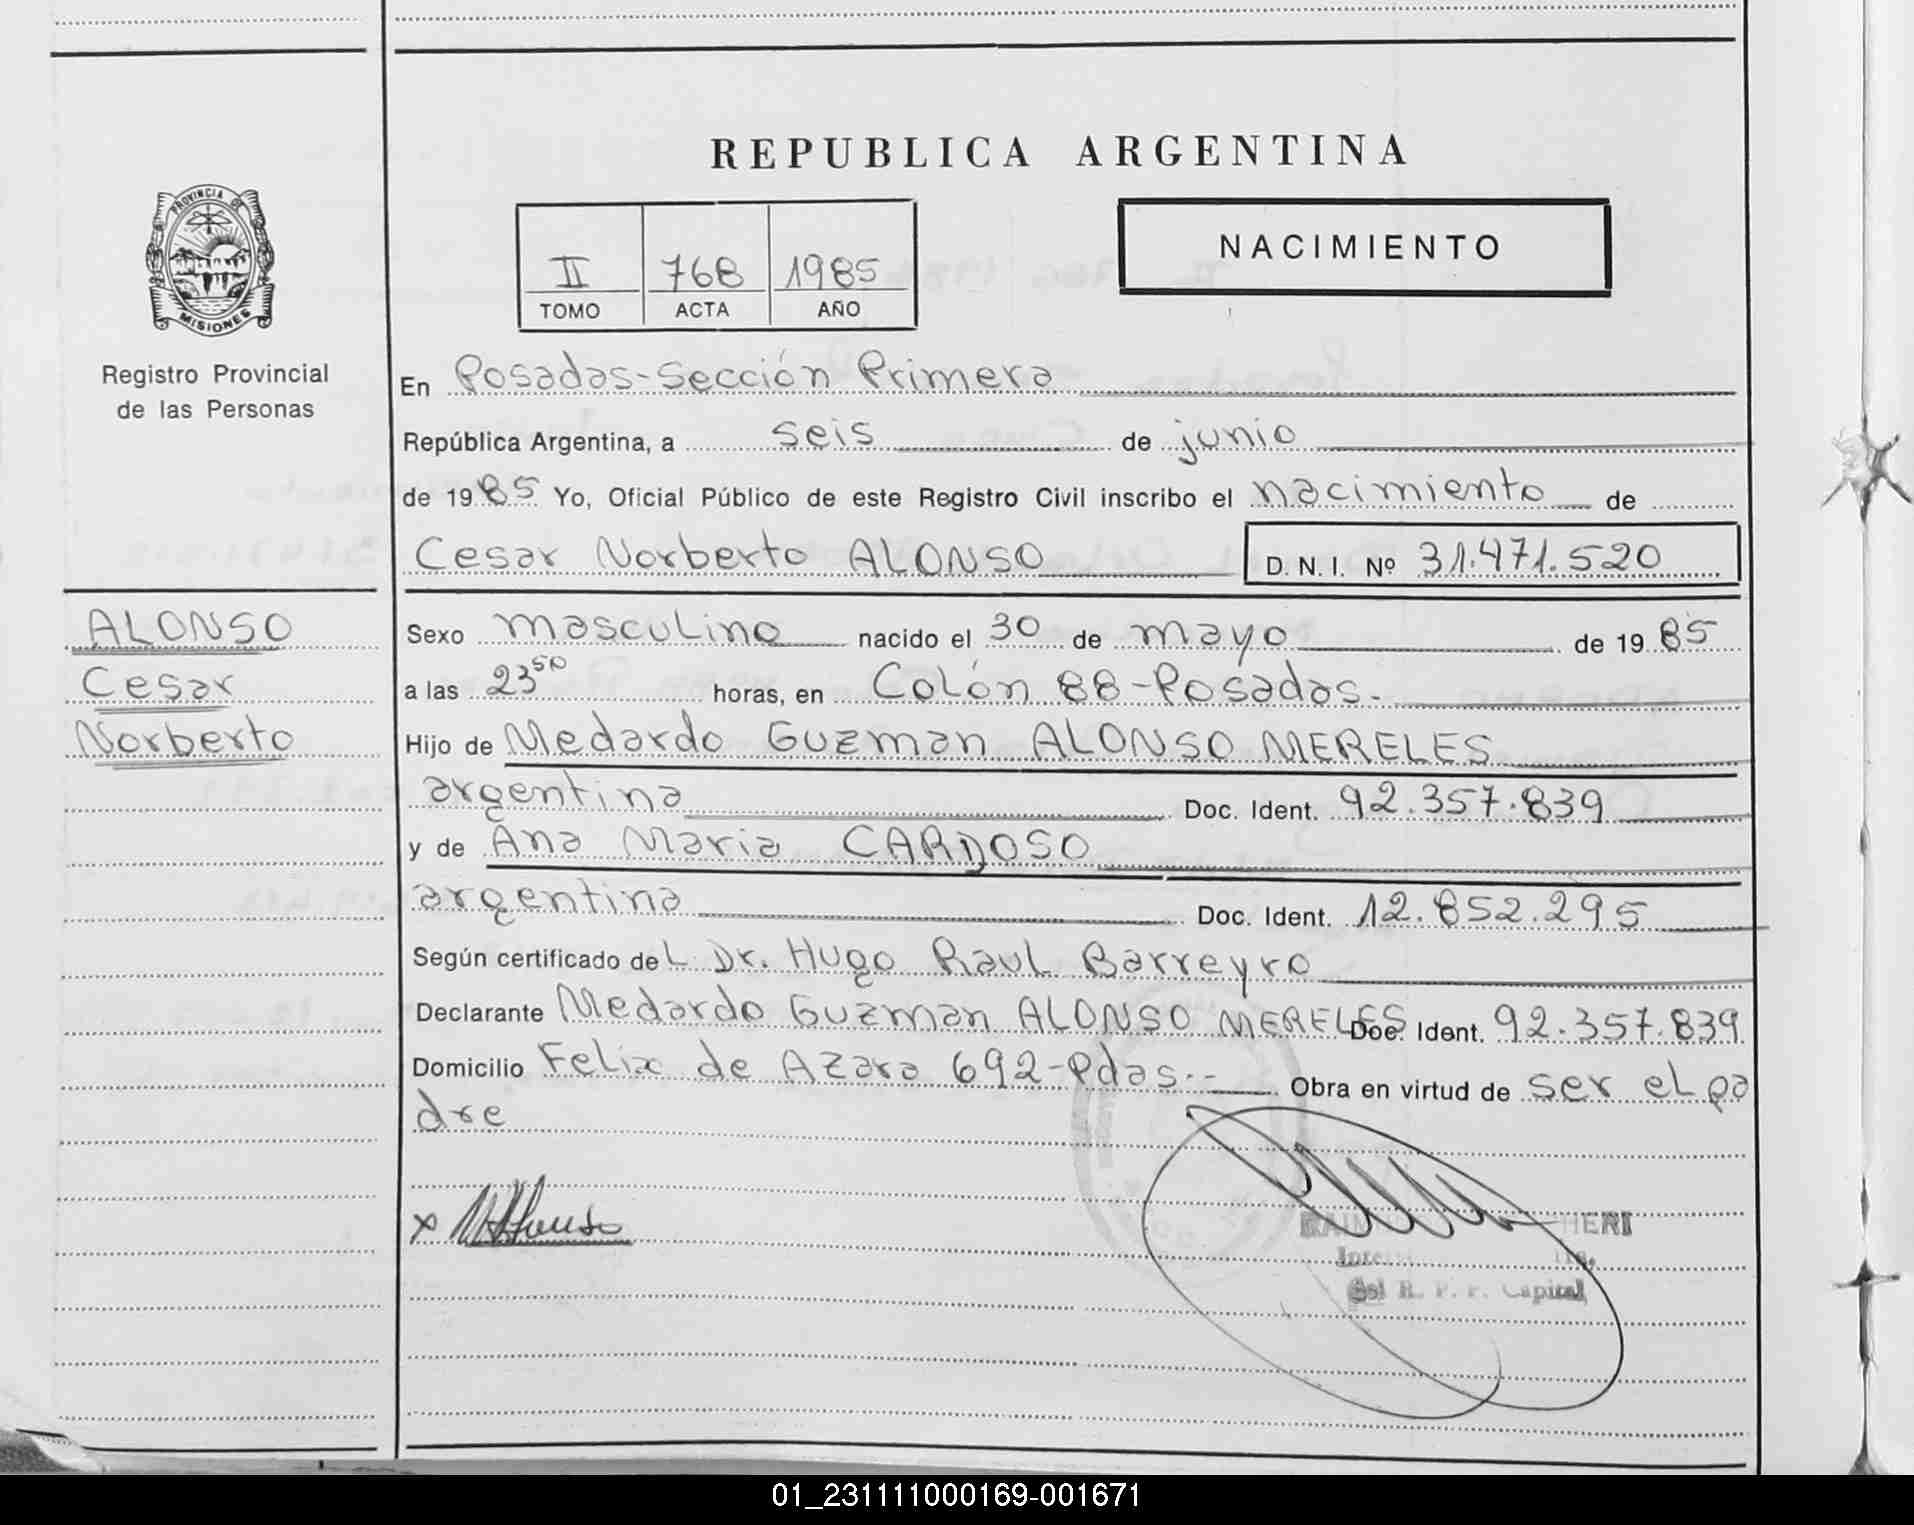 REPUBLICA ARGENTINA
PROVINCIA DE
MISIONES
Registro Provincial
de las Personas
II 768 1985
TOMO ACTA AÑO
NACIMIENTO
En Posadas-Sección Primera
República Argentina, a seis de junio
de 1985 Yo, Oficial Público de este Registro Civil inscribo el nacimiento de
Cesar Norberto ALONSO D. N. I. Nº 31.471.520
ALONSO
Cesar
Norberto
Sexo masculino nacido el 30 de mayo de 1985
a las 23⁵⁰ horas, en Colón 88-Posadas.
Hijo de Medardo Guzman ALONSO MERELES
argentina Doc. Ident. 92.357.839
y de Ana Maria CARDOSO
argentina Doc. Ident. 12.852.295
Según certificado del Dr. Hugo Raul Barreyro
Declarante Medardo Guzman ALONSO MERELES Doc. Ident. 92.357.839
Domicilio Felix de Azara 692-Pdas.- Obra en virtud de ser el pa
dre
x
del R. P. P. Capital
01_231111000169-001671